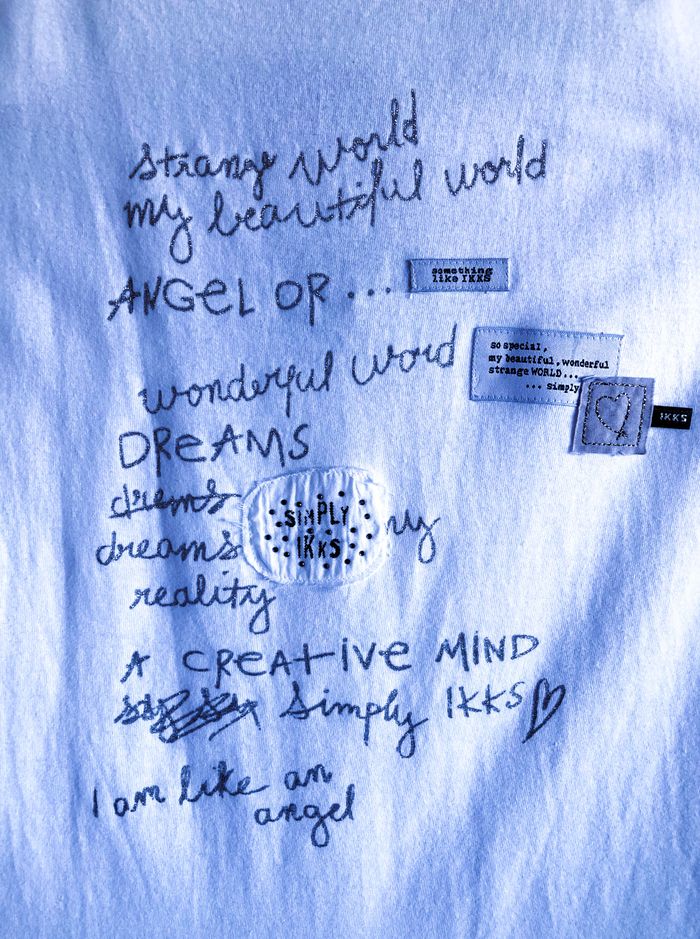 strange world
my beautiful world
ANGEL OR ...
something
like IKKS
wonderful word
so special,
my beautiful, wonderful
strange WORLD...
... simply
IKKS
DREAMS
drems
dreams
my
SIMPLY
IKKS
reality
A CREATIVE MIND
simply IKKS
I am like an
angel